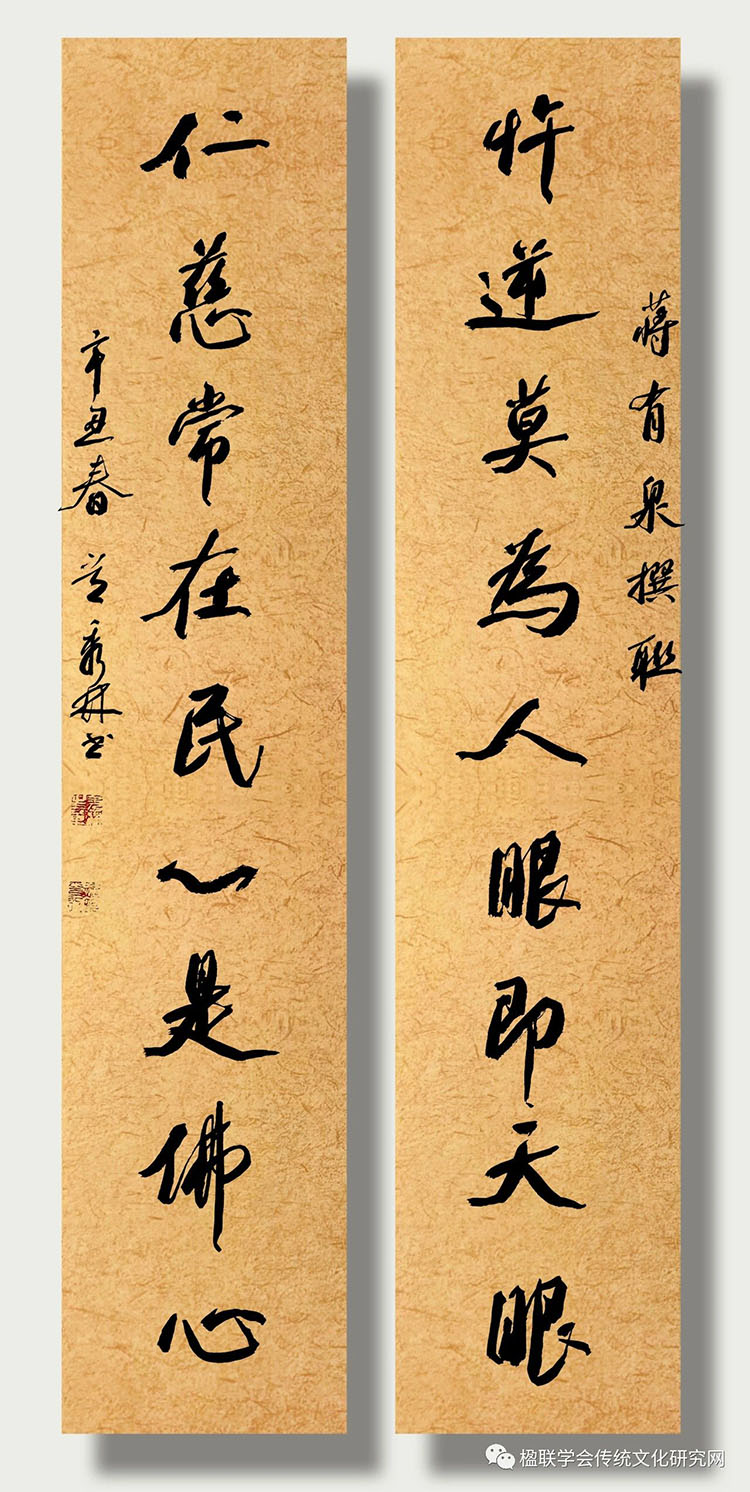 蒋有泉撰联
忤逆莫為人眼即天眼
仁慈常在民心是佛心
辛丑春
秀林书
楹联学会传统文化研究网